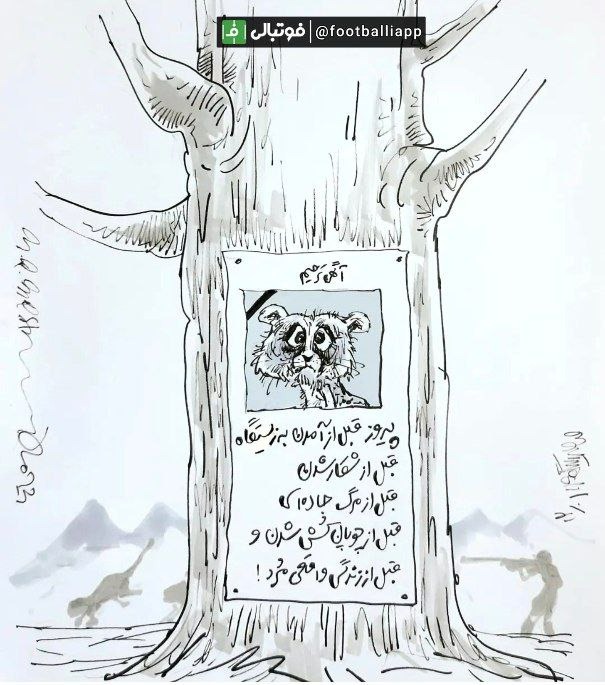 فوتبالی | @footballiapp
آگهی ترحیم
پیروز قبل از آمدن به زیستگاه
قبل از شکار شدن
قبل از مرگ جاده‌ای
قبل از چوپان کُشی شدن و
قبل از زندگی واقعی مُرد !